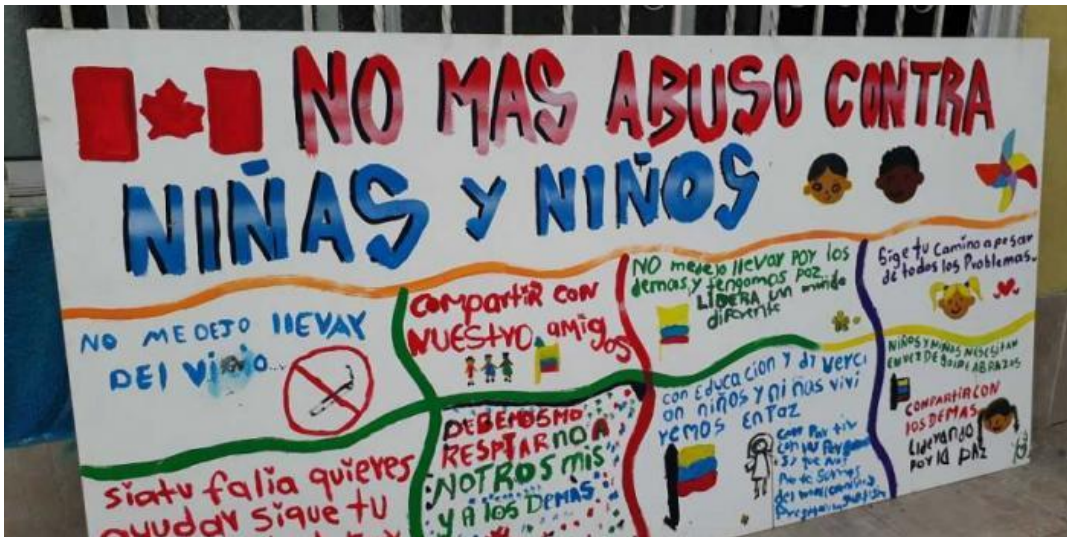 NO MAS ABUSO CONTRA
NIÑAS Y NIÑOS
NO ME DEJO llEVAR
DEl Vicio...
compartir con
NUESTVO amigos
NO medejo llevar por los
demas, y tengamos paz
LIDERA un mundo
diferente
Sige tu camino a pesar
de todos los Problemas.
NIÑOS Y NIÑAS NESESITAN
EN VEZ DE GOLPE ABRAZOS
COMPARTIR CON
LOS DEMAS
Liderando
por la paz
con Educacion y diverci
on niños y niñas vivi
remos en Paz
com par tir
DEBEMOSMO
RESPTARNO A
NOTROS MIS
y A los DEMAS
siatu falia quieres
ayudar sique tu